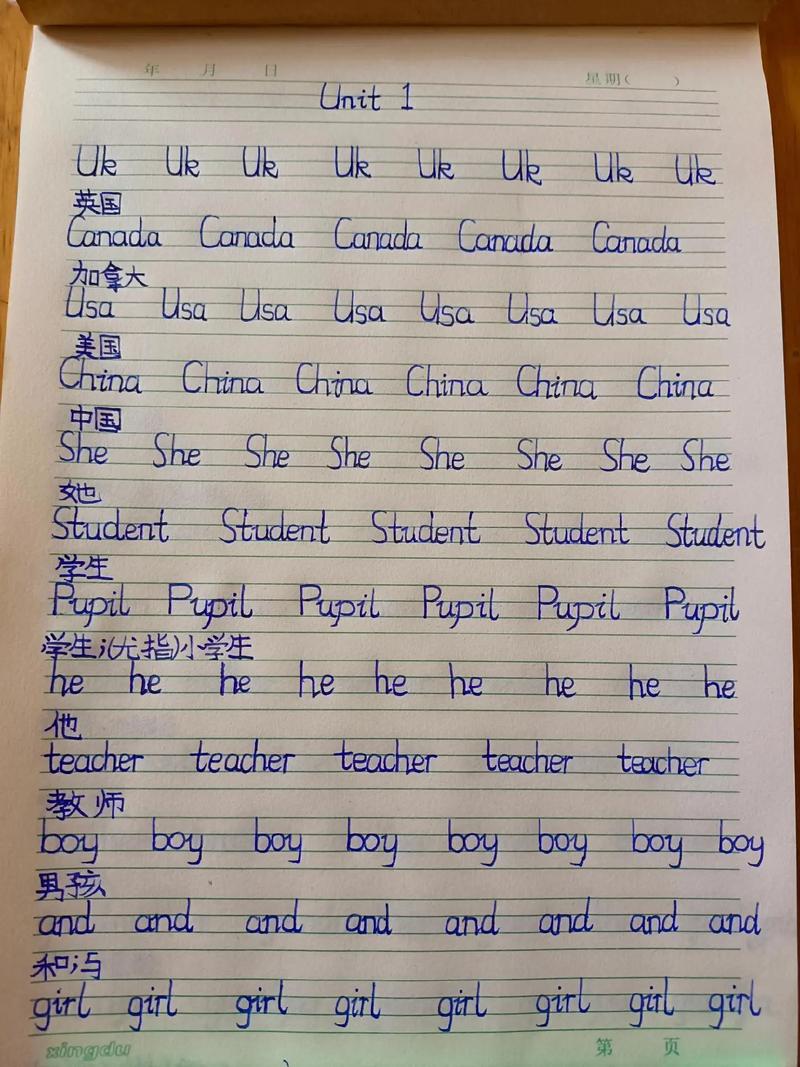 年 月 日 星期( )
Unit 1
Uk Uk Uk Uk Uk Uk Uk Uk
英国
Canada Canada Canada Canada Canada
加拿大
Usa Usa Usa Usa Usa Usa Usa Usa
美国
China China China China China China
中国
She She She She She She She She
她
Student Student Student Student Student
学生
Pupil Pupil Pupil Pupil Pupil Pupil
学生;(尤指)小学生
he he he he he he he he he
他
teacher teacher teacher teacher teacher
教师
boy boy boy boy boy boy boy boy
男孩
and and and and and and and and
和;与
girl girl girl girl girl girl girl girl
xingdu 第 页